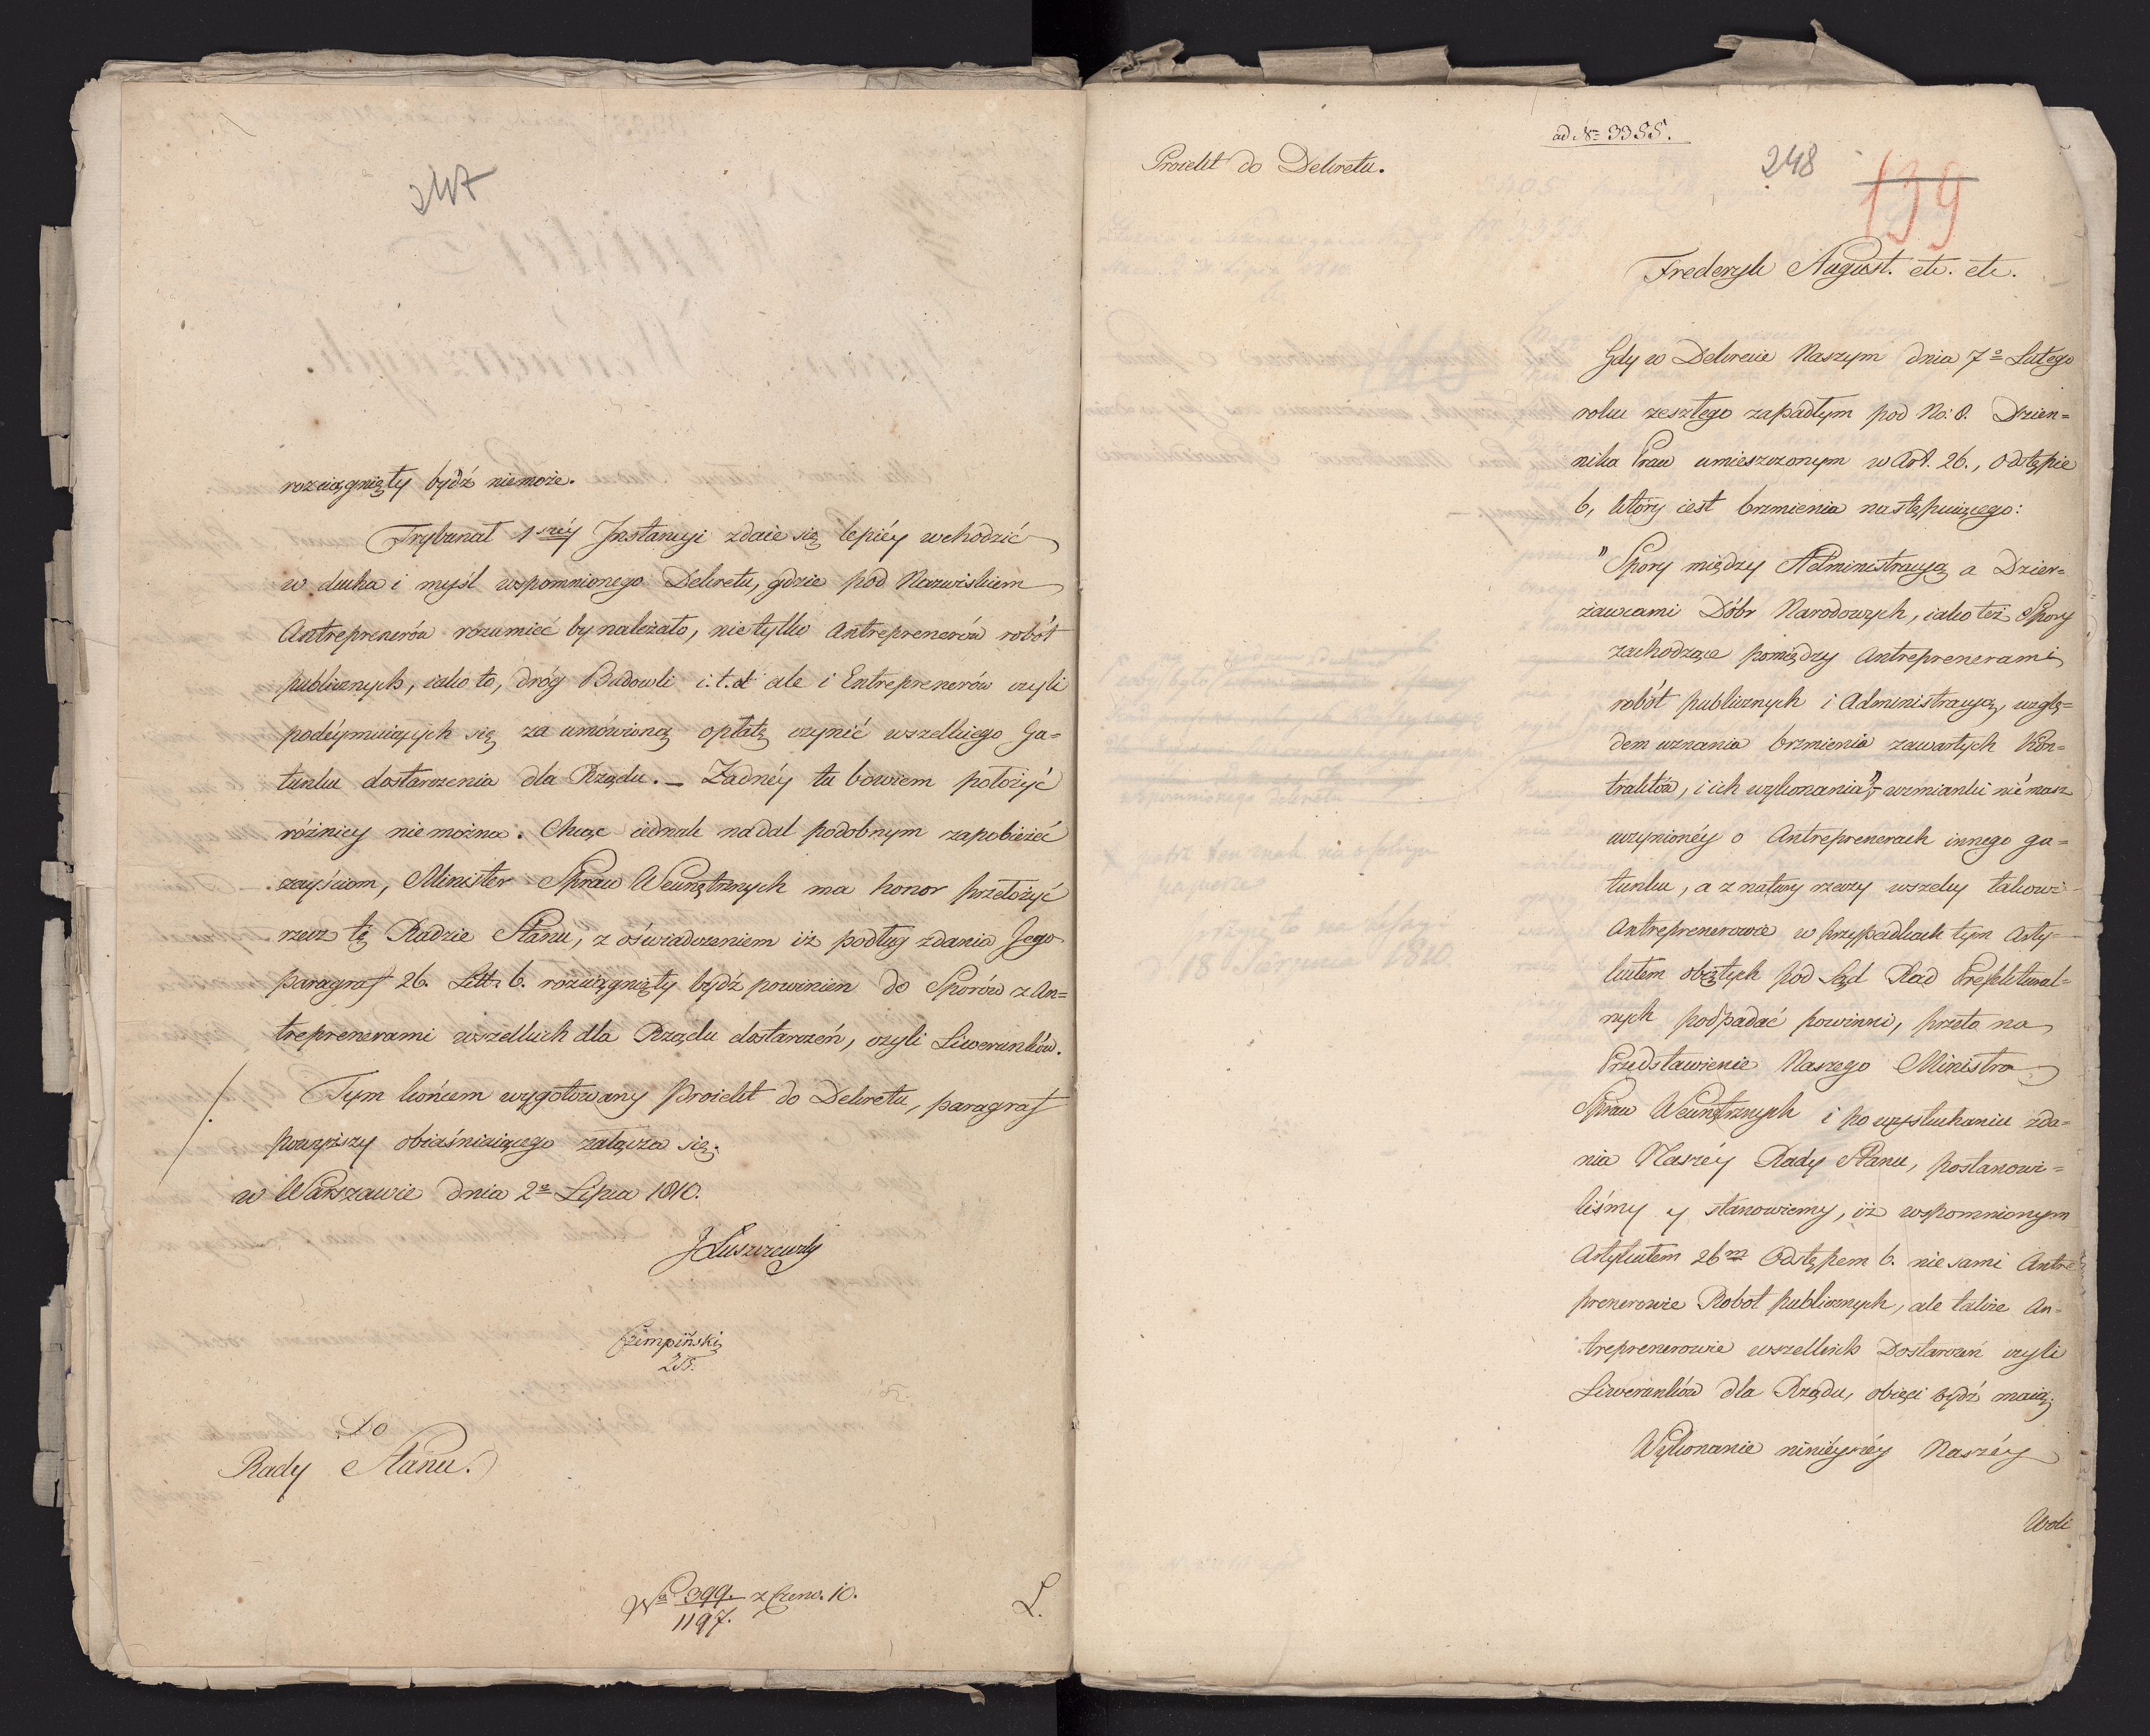 247
rozciągnięty bydź niemoże.
Trybunał 1széy Instancyi zdaie się lepiéy wchodzić
w ducha i myśl wspomnionego Dekretu, gdzie pod Nazwiskiem
Antreprenerów rozumieć by należało, nie tylko Antreprenerów robót
publicznych, iako to, dróg Budowli i.t.d ale i Entreprenerów czyli
podéymuiących się za umówioną opłatą czynić wszelkiego Ga=
tunku dostarczenia dla Rządu. – Żadnéy tu bowiem położyć
różnicy nie można. Chcąc iednak nadal podobnym zapobieżeć
zayściom, Minister Spraw Wewnętrznych ma honor przełożyć
rzecz tę Radzie Stanu, z oświadczeniem iż podług zdania Jego
paragraf 26. Litt. 6. rozciągnięty bydź powinien do Sporów z An=
treprenerami wszelkich dla Rządu dostarczeń, czyli Liwerunków.
Tym końcem wygotowany Proiekt do Dekretu, paragraf
powyższy obiaśniaiącego załącza się.
w Warszawie dnia 2º Lipca 1810.
J Łuszczewski
Czempiński
ZS.
Do
Rady Stanu.
Wa 399. z Czerw. 10.
1197.
L.
ad Nr 3355.
Proiekt do Dekretu.
248
139
Frederyk August. etc. etc.
Gdy w Dekrecie Naszym dnia 7º Lutego
roku zeszłego zapadłym pod No: 8. Dzien=
nika Praw umieszczonym w Art. 26., odstępie
6, który iest brzmienia następuiącego:
"Spory między Administracyą a Dzier=
żawcami Dóbr Narodowych, iako też Spory
zachodzące pomiędzy Antreprenerami
robót publicznych i Administracyą, wzglę=
dem uznania brzmienia zawartych Kon=
traktów, i ich wykonania", wzmianki niemasz
uczynionéy o Antreprenerach innego ga=
tunku, a z natury rzeczy wszelcy takowi
Antreprenerowie w przypadkach tym Arty=
kułem obiętych pod Sąd Rad Prefektural=
nych podpadać powinni, przeto na
Przedstawienie Naszego Ministra
Spraw Wewnętrznych i po wysłuchaniu zda=
nia Naszéy Rady Stanu, postanowi=
liśmy y stanowiemy, iż wspomnionym
Artykułem 26m Odstępem 6. nie sami Antre
prenerowie Robot publicznych, ale także An=
treprenerowie wszelkich Dostarczeń czyli
Liwerunków dla Rządu, obięci bydź maią;
Wykonanie ninieyszéy Naszéy
Woli